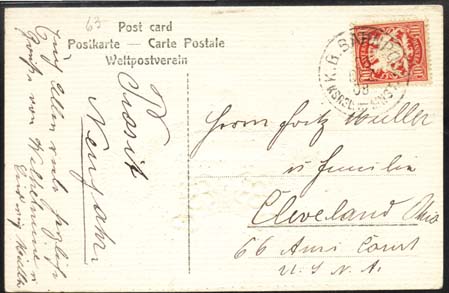 63
Post card
Postkarte — Carte Postale
Weltpostverein
Prosit
Neujahr
Euch Allen viele herzliche
Grüße von Wilhelmine u
Ludwig Müller
Herrn Fritz Müller
u Familie
Cleveland Ohio
66 Court
U. S. N. A.
K. B. BAHNPOST
10
10